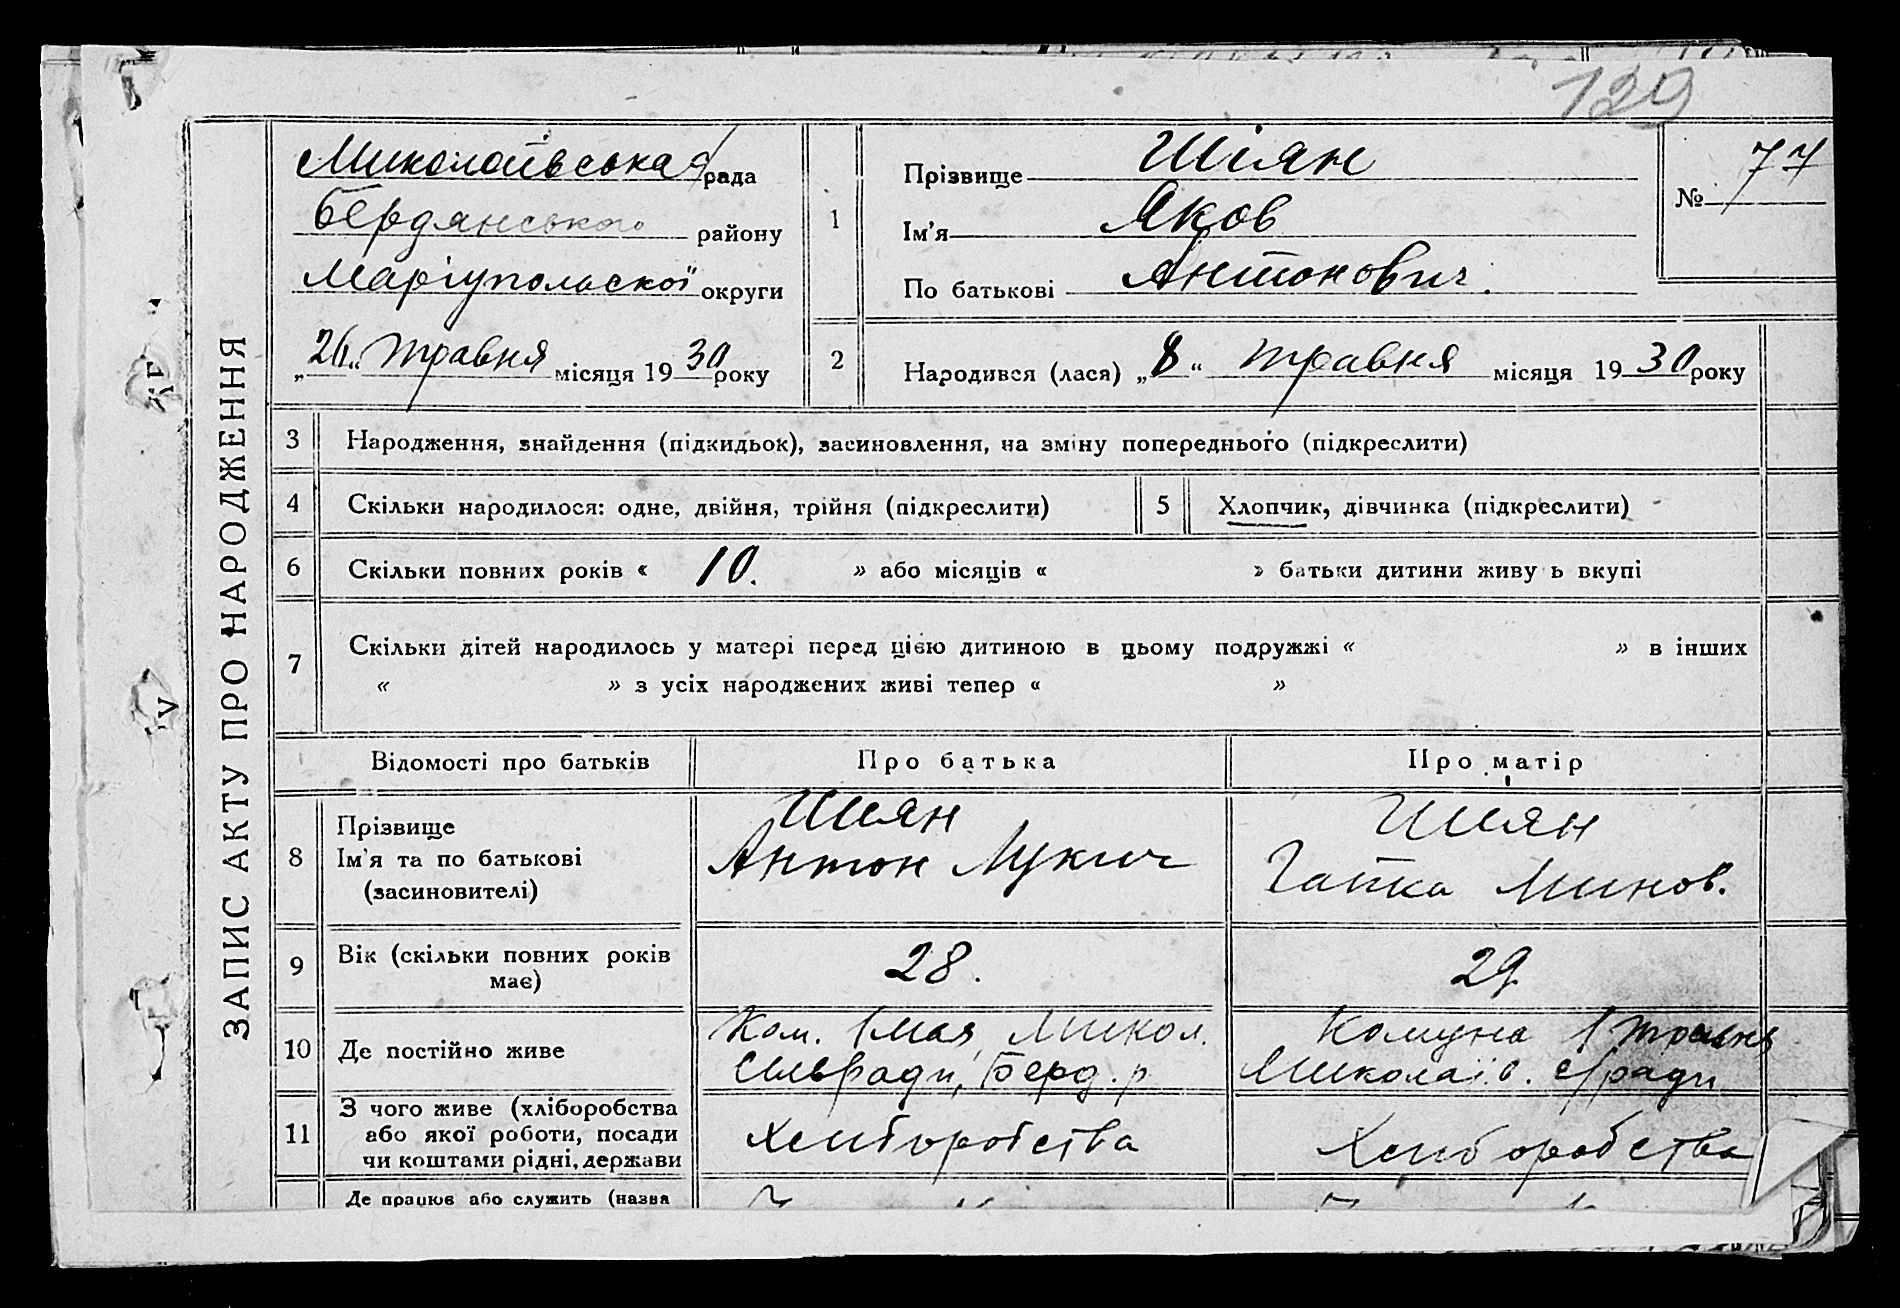 129
ЗАПИС АКТУ ПРО НАРОДЖЕННЯ
Миколаївська рада
Бердянського району
Маріупольскої округи
„26“ травня місяця 1930 року
1
Прізвище Шіян
Ім'я Яков
По батькові Антонович.
№ 77
2
Народився (лася) „8“ травня місяця 1930 року
3 Народження, знайдення (підкидьок), засиновлення, на зміну попереднього (підкреслити)
4 Скільки народилося: одне, двійня, трійня (підкреслити)
5 Хлопчик, дівчинка (підкреслити)
6 Скільки повних років « 10. » або місяців « » батьки дитини живу ь вкупі
7 Скільки дітей народилось у матері перед цією дитиною в цьому подружжі « » в інших
« » з усіх народжених живі тепер « »
Відомості про батьків Про батька Про матір
8
Прізвище
Ім'я та по батькові
(засиновителі)
Шиян
Антон Лукич
Шиян
Гапка Минов.
9
Вік (скільки повних років
має)
28.
29
10 Де постійно живе
Ком. 1 мая, Микол.
Сільради, Берд. р
Комуна 1 травня
Миколаїв. с/ради
11
З чого живе (хліборобства
або якої роботи, посади
чи коштами рідні, держави
Хліборобства
Хліборобства
Де працює або служить (назва